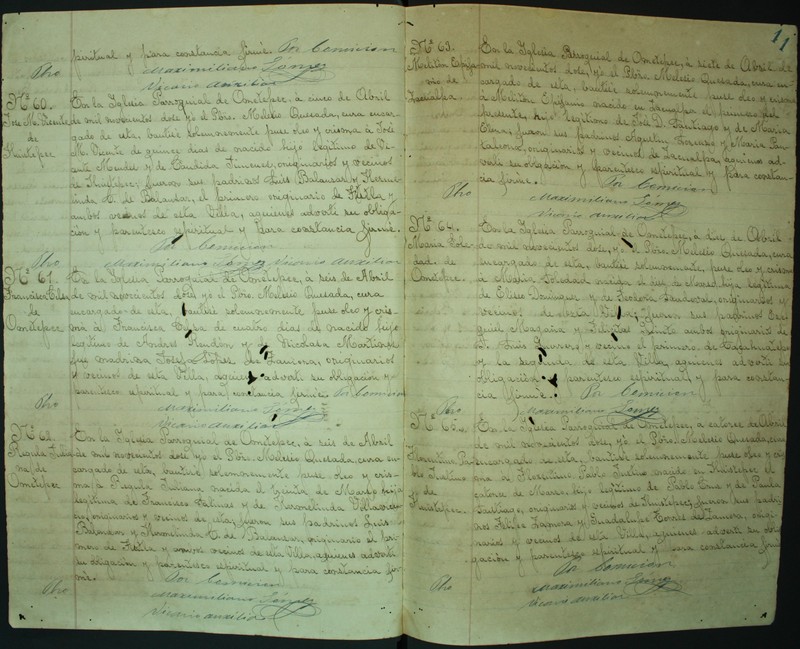 piritual y para constancia firmé. Por Comision
Pbo
Maximiliano Gómez
Vicario Auxiliar
No 60.
José M. Vicente
de
Huistepec
En la Iglesia Parroquial de Ometepec, á cinco de Abril
de mil novecientos doce, yo el Pbro. Modesto Quesada, cura encar-
gado de esta, bauticé solemnemente puse oleo y crisma á José
M. Vicente de quince dias de nacido hijo legítimo de Vi-
cente Mendez y de Candida Jimenez, originarios y vecinos
de Huistepec; fueron sus padrinos Luis Balansar y Herme-
linda C. de Balansar, el primero originario de
ambos vecinos de esta Villa, aquienes advertí su obliga-
ción y parentesco espiritual y para constancia firmé.
Por Comision
Pbo
Maximiliano Gómez Vicario Auxiliar
No 61.
Francisca
de
Ometepec
En la Iglesia Parroquial de Ometepec, á seis de Abril
de mil novecientos doce, yo el Pbro. Modesto Quesada, cura
encargado de esta, bauticé solemnemente puse oleo y cris-
ma á Francisca de cuatro dias de nacida hija
legítima de Andres Rendon y de Nicolasa Martinez
fue madrina Lopez de Zamora, originarios
y vecinos de esta Villa, aquien advertí su obligación y
parentesco espiritual y para constancia firmé. Por Comision
Pbo
Maximiliano Gómez
Vicario Auxiliar
No 62.
de
Ometepec
En la Iglesia Parroquial de Ometepec, á seis de Abril
de mil novecientos doce, yo el Pbro. Modesto Quesada, cura en-
cargado de esta, bauticé solemnemente puse oleo y cris-
ma á nacida el treinta de Marzo hija
legítima de Francisco y de
originarios y vecinos de esta; fueron sus padrinos Luis
Balansar y Hermelinda C. de Balansar, originario el pri-
mero de y ambos vecinos de esta Villa, aquienes advertí
su obligación y parentesco espiritual y para constancia fir-
mé.
Por Comision
Pbo
Maximiliano Gómez
Vicario auxiliar
11
No 63.
Meliton Epifa-
nio de
En la Iglesia Parroquial de Ometepec, á siete de Abril de
mil novecientos doce, yo el Pbro. Modesto Quesada, cura en-
cargado de esta, bauticé solemnemente puse oleo y crisma
á Meliton Epifanio nacido en el primero del
presente, hijo legítimo de José D. Santiago y de Maria
fueron sus padrinos Agustin y Maria
originarios y vecinos de aquienes ad-
vertí su obligación y parentesco espiritual y para constan-
cia firmé.
Por Comision
Pbo
Maximiliano Gómez
Vicario auxiliar
No 64.
Maria Sole-
dad de
Ometepec.
En la Iglesia Parroquial de Ometepec, á diez de Abril
de mil novecientos doce, yo el Pbro. Modesto Quesada, cura
encargado de esta, bauticé solemnemente, puse oleo y crisma
á Maria Soledad nacida el diez de Marzo hija legítima
de Eliseo Dominguez y de Sandoval, originarios y
vecinos de esta Villa; fueron sus padrinos Eze-
quiel Magaña y ambos originarios de
y vecino el primero de
y la segunda de esta Villa, aquienes advertí su
obligación y parentesco espiritual y para constan-
cia firmé.
Por Comision
Pbo
Maximiliano Gómez
Vicario auxiliar
No 65.
de
Huistepec.
En la Iglesia Parroquial de Ometepec, á catorce de Abril
de mil novecientos doce, yo el Pbro. Modesto Quesada, cura
encargado de esta, bauticé solemnemente puse oleo y cris-
ma á Florentino Pablo nacido en Huistepec el
catorce de Marzo, hijo legítimo de Pablo y de Paula
Santiago, originarios y vecinos de Huistepec; fueron sus padri-
nos Felipe Zamora y Guadalupe Torres de Zamora, origi-
narios y vecinos de esta Villa, aquienes advertí su obli-
gación y parentesco espiritual y para constancia firmé
Por Comision
Pbo
Maximiliano Gómez
Vicario auxiliar